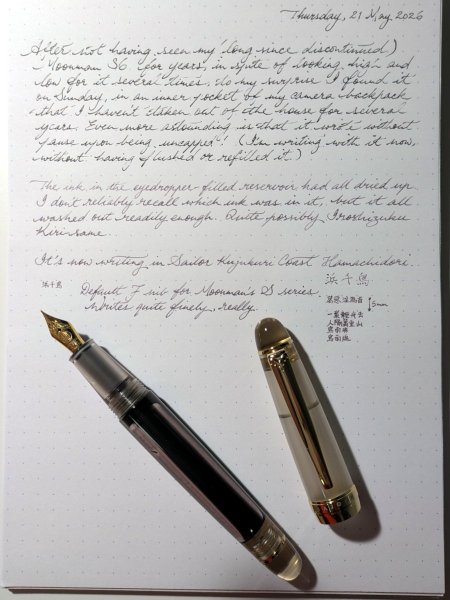 Thursday, 21 May 2026
After not having seen my (long since discontinued)
Moonman S6 for years, in spite of looking high and
low for it several times, to my surprise I found it
on Sunday, in an inner pocket of my camera backpack
that I haven't taken out of the house for several
years. Even more astounding is that it wrote without
pause upon being uncapped! (I'm writing with it now,
without having flushed or refilled it.)
The ink in the eyedropper-filled reservoir had all dried up.
I don't reliably recall which ink was in it, but it all
washed out readily enough. Quite possibly Iroshizuku
Kiri-same.
It's now writing in Sailor Kujukuri Coast Hamachidori.
浜千鳥
浜千鳥
Default F nib for Moonman's S series.
Writes quite finely, really.
5mm